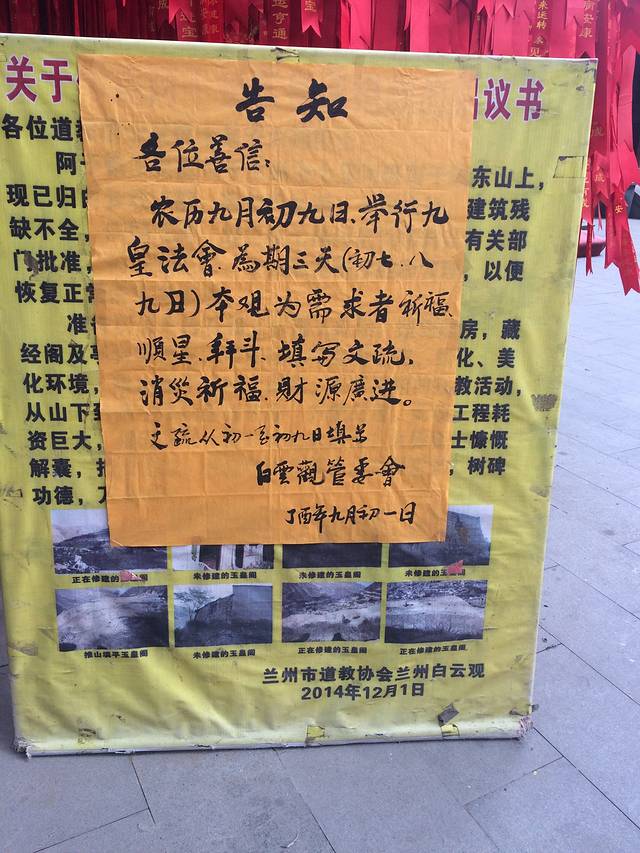 关于
议书
各位道
阿
东山上，
现已归
建筑残
缺不全，
有关部
门批准，
，以便
恢复正常
准
房，藏
经阁及
化、美
化环境，
教活动，
从山下
工程耗
资巨大，
士慷慨
解囊，
，树碑
功德，
告知
各位善信：
农历九月初九日、举行九
皇法會.為期三天(初七.八
九日)本观为需求者祈福、
順星.拜斗.填写文疏，
消災祈福.財源廣进。
文疏从初一至初九日填写
白雲觀管委會
丁酉年九月初一日
正在修建的玉皇阁
未修建的玉皇阁
未修建的玉皇阁
未修建的玉皇阁
推山填平玉皇阁
未修建的玉皇阁
正在修建的玉皇阁
正在修建的玉皇阁
兰州市道教协会兰州白云观
2014年12月1日